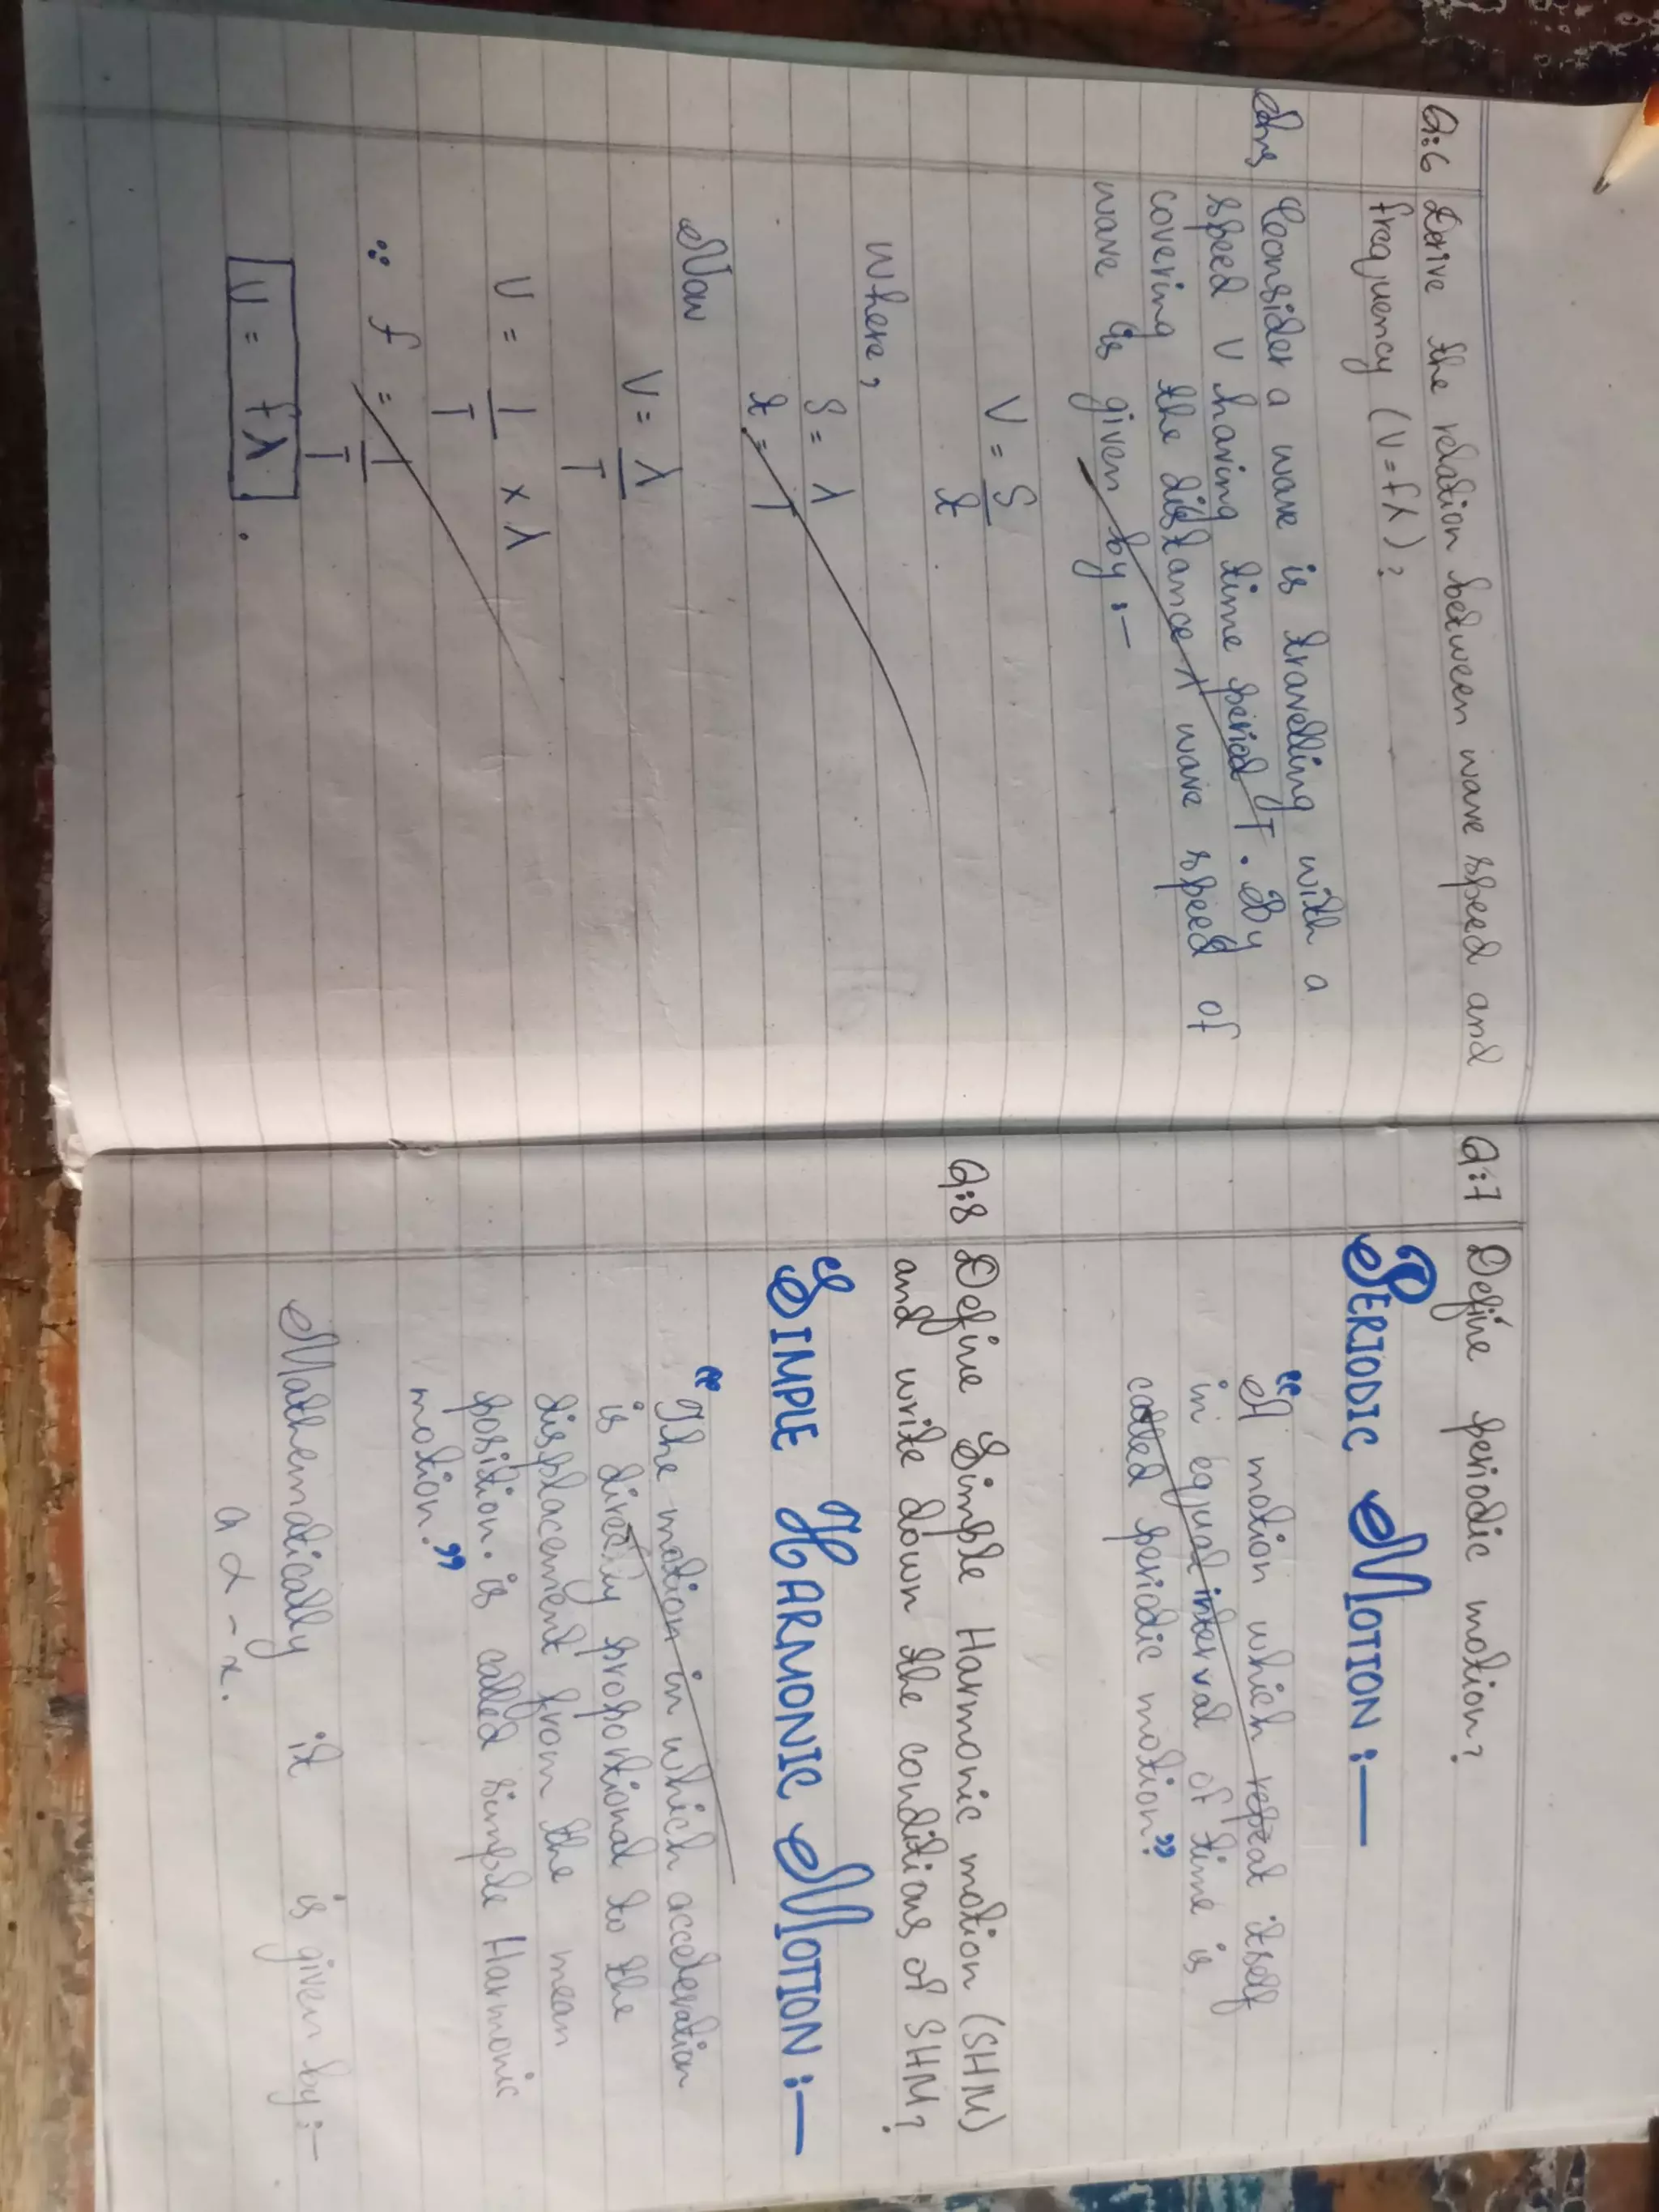 Q:6 Derive the relation between wave speed and
frequency (V=fλ)?
Ans Consider a wave is travelling with a
speed V having time period T. By
covering the distance λ wave speed of
wave is given by:—
V = S/t
Where,
S = λ
t = T
Now
V = λ/T
V = 1/T × λ
∵ f = 1/T
V = fλ.
Q:7 Define periodic motion?
PERIODIC MOTION:—
“A motion which repeat itself
in equal interval of time is
called periodic motion”
Q:8 Define Simple Harmonic motion (SHM)
and write down the conditions of SHM?
SIMPLE HARMONIC MOTION:—
“The motion in which acceleration
is directly proportional to the
displacement from the mean
position. is called simple Harmonic
motion.”
Mathematically it is given by:—
a α -x.